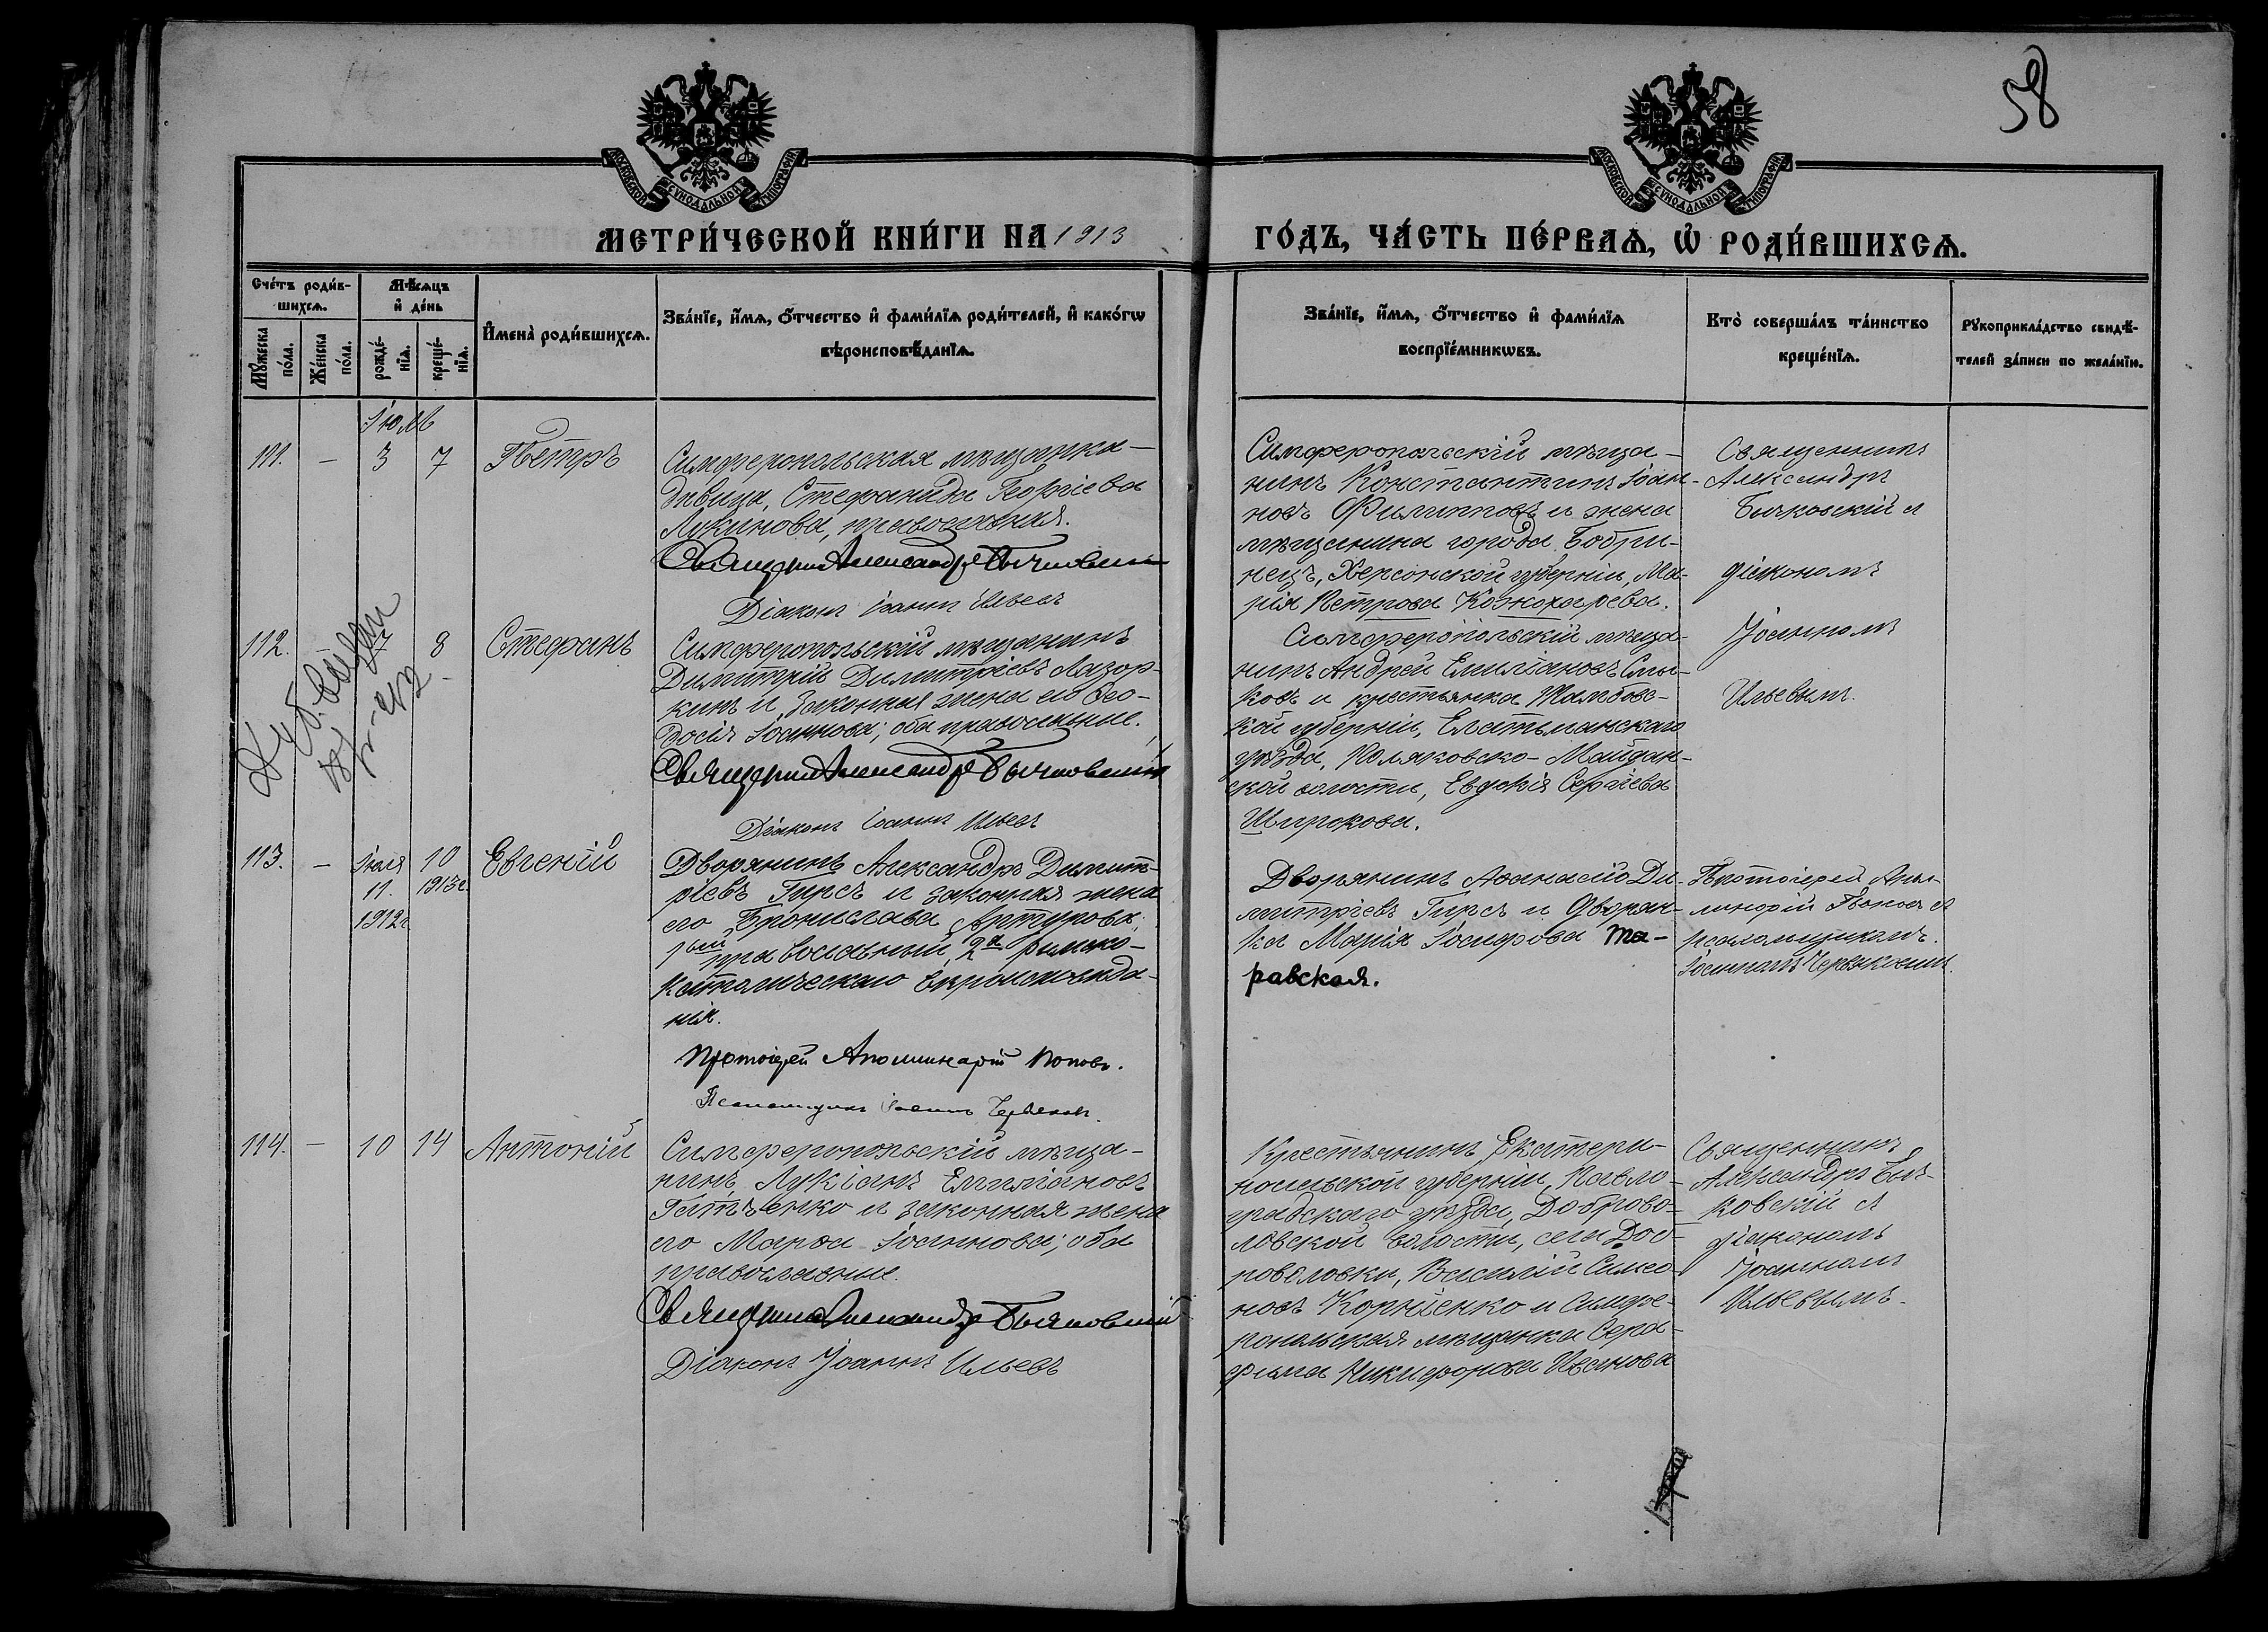 58
МОСКОВСКОЙ СУНОДАЛЬНОЙ ТИПОГРАФІИ
МОСКОВСКОЙ СУНОДАЛЬНОЙ ТИПОГРАФІИ
МЕТРИ́ЧЕСКОЙ КНИ́ГИ НА 1913 ГО́ДЪ, ЧА́СТЬ ПЕ́РВАѦ, Ѡ҆ РОДИ́ВШИХСѦ.
Сче́тъ роди́в-
шихсѧ.
Мѣ́сѧцъ
и҆ де́нь
Мꙋ́жеска по́ла.
Же́нска по́ла.
рожде́-
нїѧ.
креще́-
нїѧ.
И҆мена̀ роди́вшихсѧ.
Зва́нїе, и҆́мѧ, ѻ҆́тчество и҆ фами́лїѧ роди́телей, и҆ како́гѡ
вѣроисповѣ́данїѧ.
Зва́нїе, и҆́мѧ, ѻ҆́тчество и҆ фами́лїѧ
воспрїе́мникѡвъ.
Кто̀ соверша́лъ та́инство
креще́нїѧ.
Рꙋкоприкла́дство свидѣ́-
телей за́писи по жела́нїю.
Іюль
111.
—
3
7
Петръ
Симферопольская мѣщанка-
дѣвица, Стефанида Георгіева
Лукинова, православная.
Священникъ Александръ Бычковскій
Діаконъ Іоаннъ Ильевъ
Симферопольскій мѣща-
нинъ Константинъ Іоан-
новъ Филипповъ и жена
мѣщанина города Бобри-
нецъ, Херсонской губерніи, Ма-
рія Петрова Кожохарева.
Священникъ
Александръ
Бычковскій съ
діакономъ
Іоанномъ
Ильевымъ.
112.
7
8
Стефанъ
Симферопольскій мѣщанинъ
Димитрій Димитріевъ Лазор-
кинъ и законная жена его Ѳео-
досія Іоаннова; оба православные.
Священникъ Александръ Бычковскій
Діаконъ Іоаннъ Ильевъ
Симферопольскій мѣща-
нинъ Андрей Емиліановъ
ковъ и крестьянка Тамбовс-
кой губерніи, Елатьманскаго
уѣзда, Поляковско-Майдан-
ской волости, Евдокія Сергіева
Широкова.
113.
—
Іюля
11.
1912г.
10
1913г.
Евгеній
Дворянинъ Александръ Димит-
ріевъ Гирсъ и законная жена
его Бронислава Артурова;
1ый православный, 2я римско-
католическаго вѣроисповѣда-
нія.
Протоіерей Аполлинарій Поповъ.
Псаломщикъ Іоаннъ Червяковъ.
Дворянинъ Аѳанасій Ди-
митріевъ Гирсъ и Дворян-
ка Марія Іосифова Та-
равская.
Протоіерей Апол-
линарій Поповъ съ
псаломщикомъ
Іоанномъ Червяковымъ.
114.
—
10
14
Антоній
Симферопольскій мѣща-
нинъ Лукіанъ Емиліановъ
Гатченко и законная жена
его Марѳа Іоаннова; оба
православные.
Священникъ Александръ Бычковскій
Діаконъ Іоаннъ Ильевъ
Крестьянинъ Екатери-
нославской губерніи, Павло-
градскаго уѣзда, Доброво-
ловской волости, села Доб-
роволовки, Василій Симео-
новъ Корніенко и Симфе-
ропольская мѣщанка Сера-
фима Никифорова Иванова
Священникъ
Александръ Быч-
ковскій съ
діакономъ
Іоанномъ
Ильевымъ.